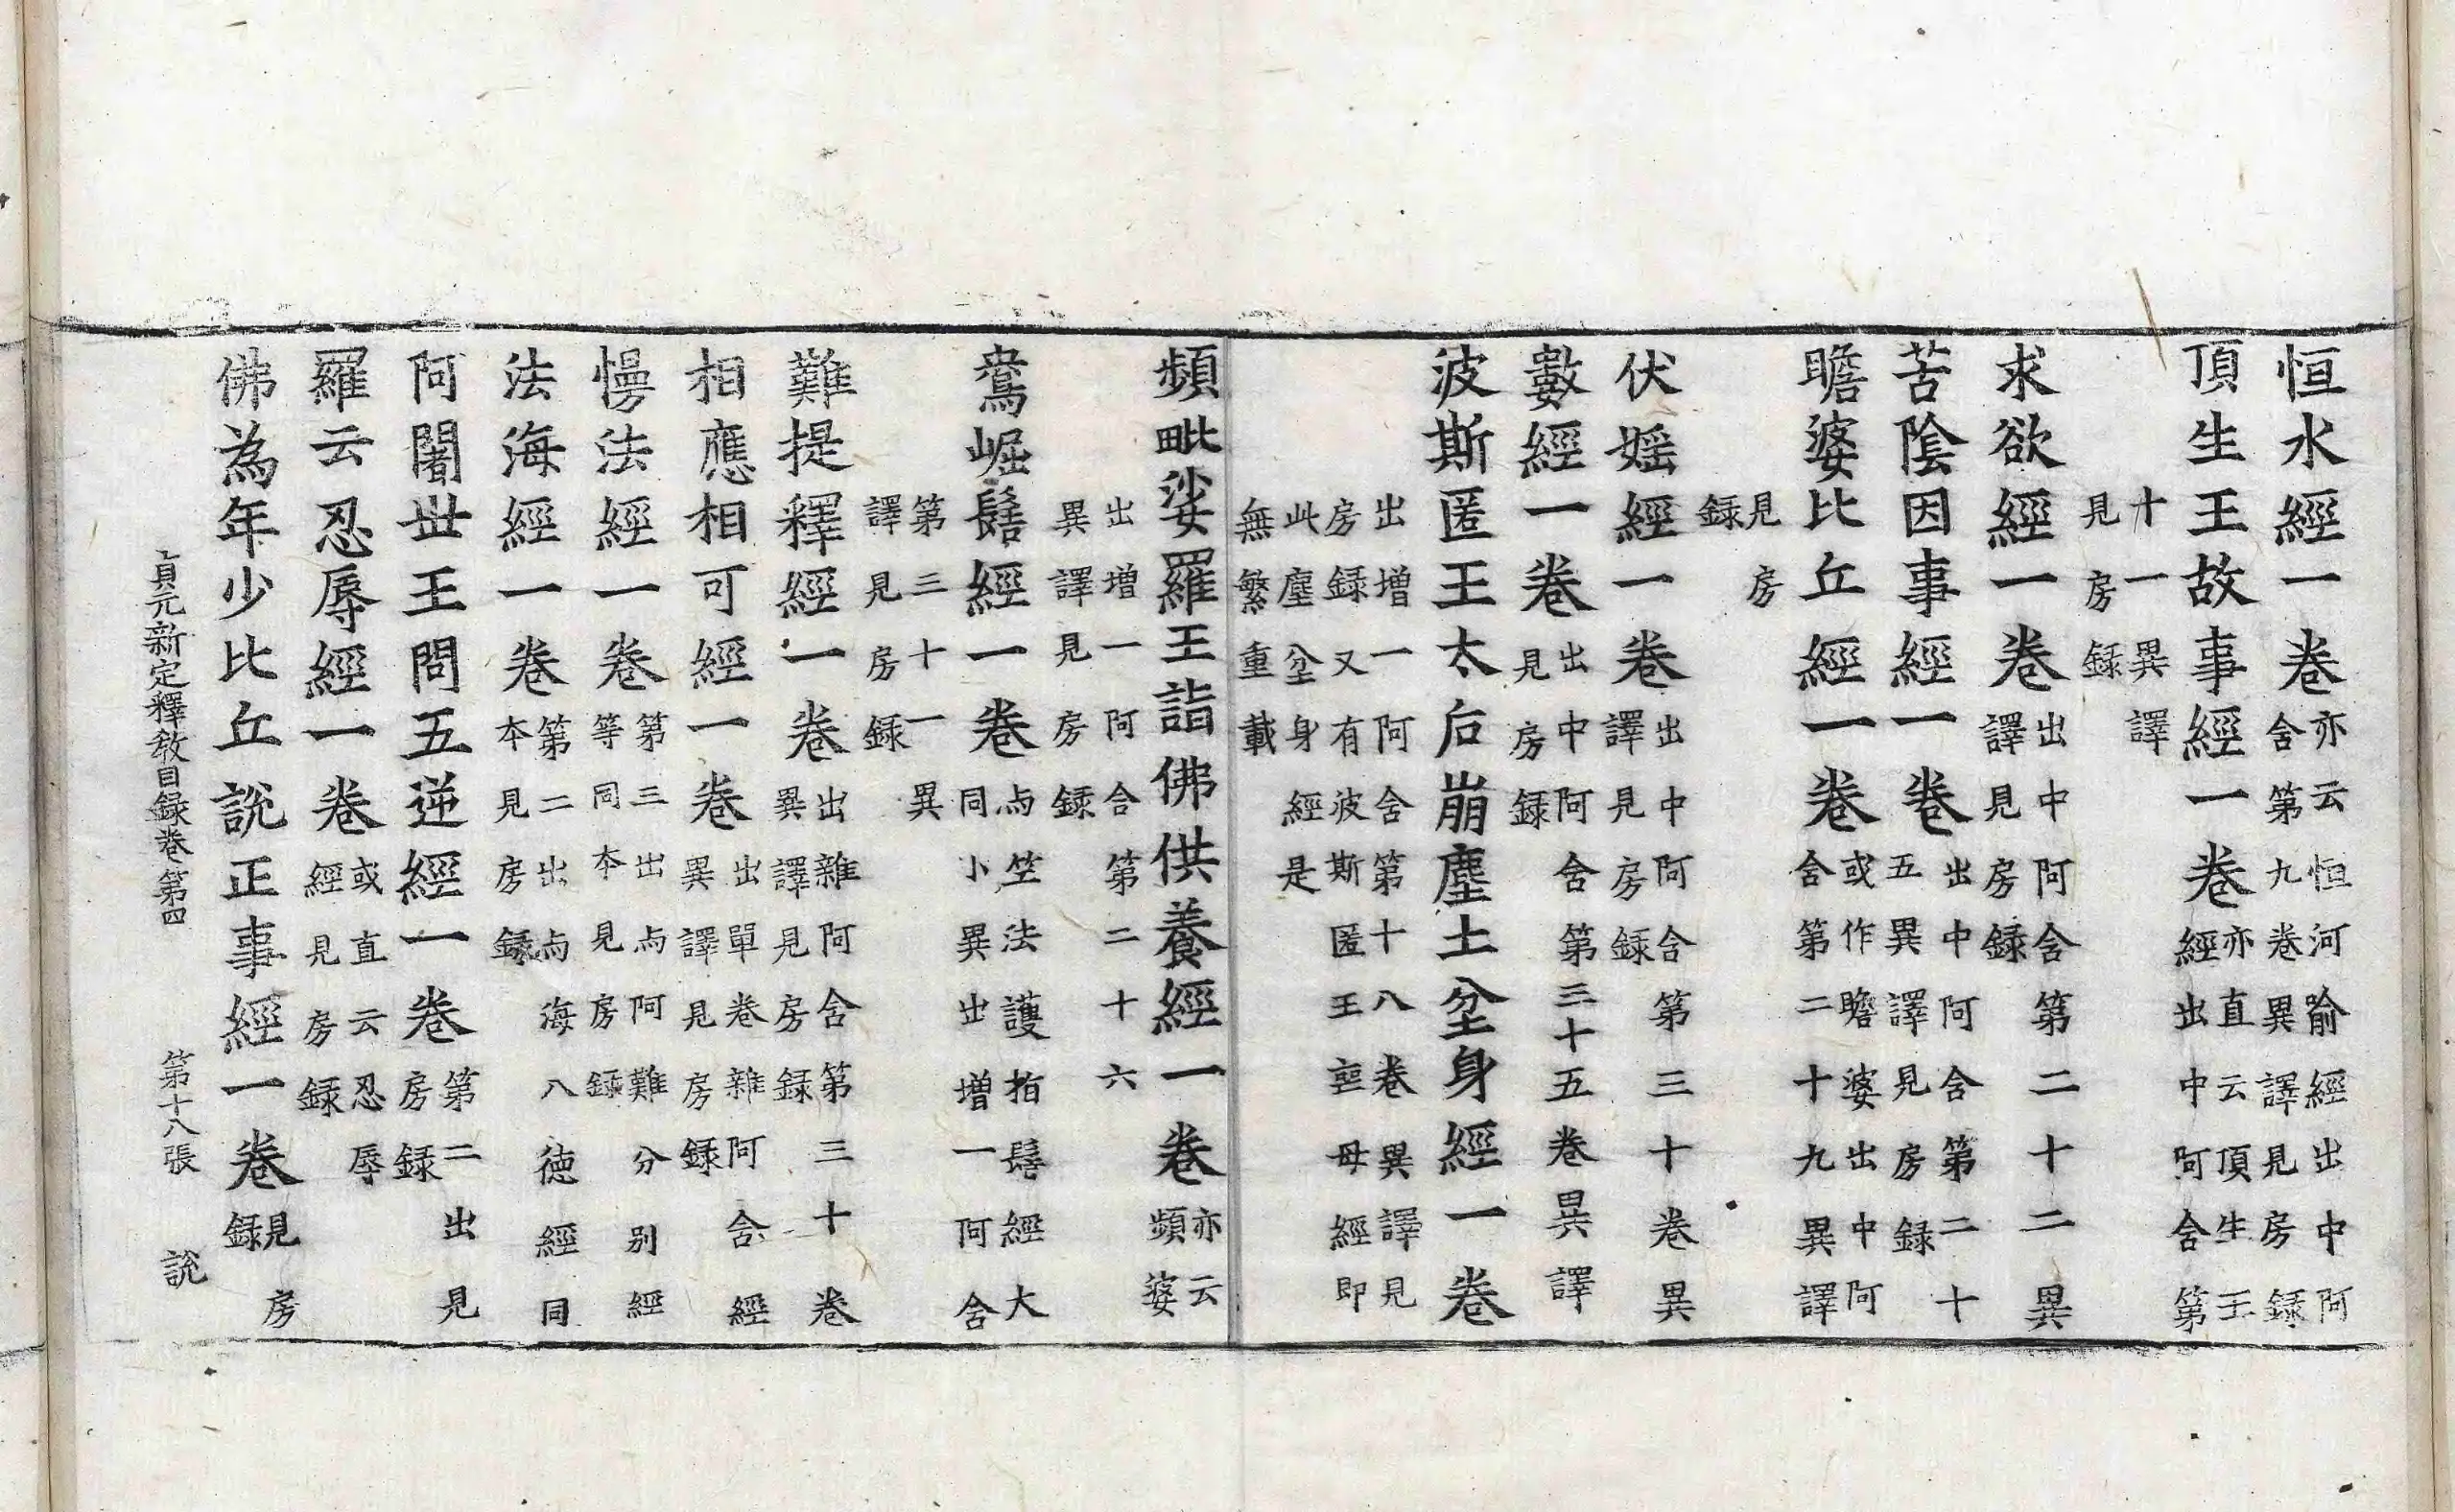 恒水經一卷亦云恒河喻經出中阿
舍第九卷異譯見房録
頂生王故事經一卷亦直云頂生王
經出中阿舍第
十一異譯
見房録
求欲經一卷出中阿含第二十二異
譯見房録
苦陰因事經一卷出中阿含第二十
五異譯見房録
瞻婆比丘經一卷或作瞻婆出中阿
舍第二十九異譯
見房
録
伏婬經一卷出中阿含第三十卷異
譯見房録
數經一卷出中阿含第三十五卷異譯
見房録
波斯匿王太后崩塵土坌身經一卷
出增一阿舍第十八卷異譯見
房録又有波斯匿王䘮母經即
此塵坌身經是
無繁重載
頻毗娑羅王詣佛供養經一卷亦云
頻婆
出增一阿含第二十六
異譯見房録
鴦崛髻經一卷与竺法護指髻經大
同小異出增一阿含
第三十一異
譯見房録
難提釋經一卷出雜阿含第三十卷
異譯見房録
相應相可經一卷出單卷雜阿含經
異譯見房録
慢法經一卷第三出与阿難分别經
等同本見房録
法海經一卷第二出与海八德經同
本見房録
阿闍丗王問五逆經一卷第二出見
房録
羅云忍辱經一卷或直云忍辱
經見房録
佛為年少比丘說正事經一卷見房
録
貞元新定釋教目録卷第四　第十八張　說